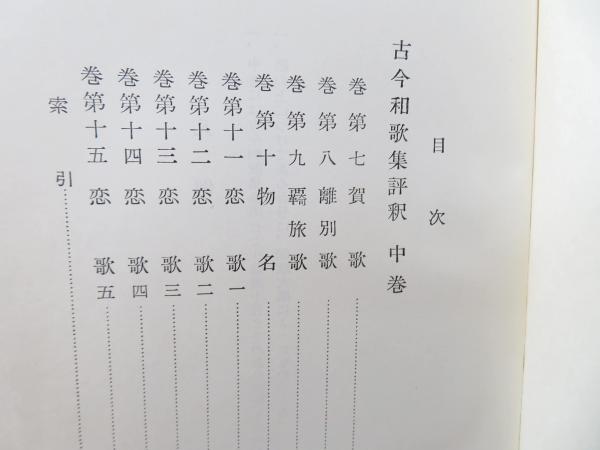 目次
古今和歌集評釈 中巻
巻第七賀歌
巻第八離別歌
巻第九覊旅歌
巻第十物名
巻第十一恋歌一
巻第十二恋歌二
巻第十三恋歌三
巻第十四恋歌四
巻第十五恋歌五
索引